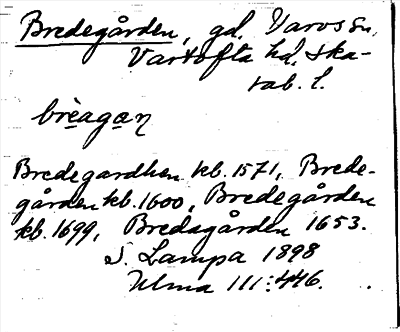 Bredegården, gd, Varvs sn,
Vartofta hd, Ska-
rab. l.
brèagan
Bredegardhen kb. 1571, Brede-
gården kb. 1600, Bredegården
kb. 1699, Bredagården 1653.
S. Lampa 1898
Ulma 111:446.